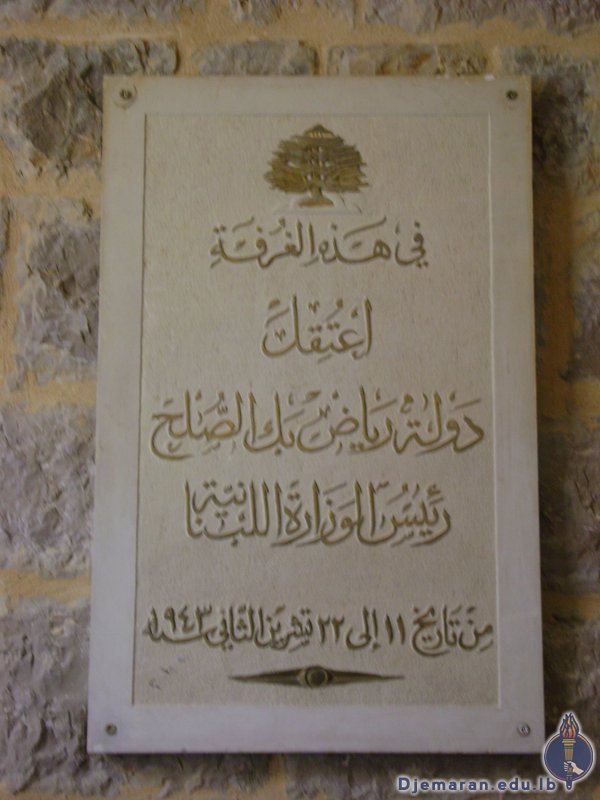 في هَذِهِ الغُرفَةِ
اعْتُقِلَ
دَولة رياض بك الصُّلح
رَئيسُ الوَزارَة اللبنانية
مِن تاريخ ١١ إلى ٢٢ تشرين الثاني سنة ١٩٤٣
Djemaran.edu.lb